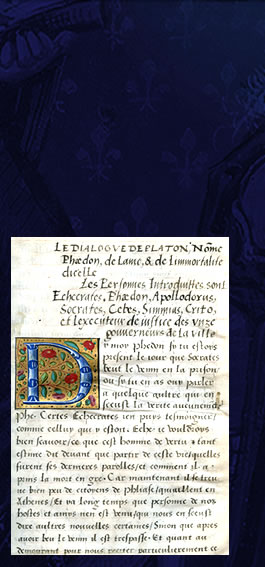 LE DIALOGVE DE PLATON, Nōme
Phædon, de Lame, & de Limmortalite
dicelle
Les Personnes Introduittes sont
Echecrates, Phædon, Apollodorus,
Socrates, Cebes, Simmias, Crito,
et Lexecuteur de iustice des vnze
gouuerneurs de la ville
Dy moy phedon si tu estois
present le iour que Socrates
beut le venin en la prison
ou si tu en as ouy parler
a quelque aultre qui en
sceust la verite
Phe. Certes Echecrates ien puys tesmoigner
comme celluy qui y estoit. Eche. ie vouldrois
bien scauoir/ce que cest homme de vertu a tant
estime dit deuant que partir de ceste vie/quelles
furent ses dernieres parolles/et comment il a
prins la mort en gre. Car maintenant il se treu
ue bien peu de citoyens de phliase/qui aillent en
Athenes/Et na long temps que personne de nos
hostes et amys nen est venu/qui nous en sceust
dire aultres nouuelles certaines/Sinon que apres
auoir beu le venin il est trespasse. Et quant au
demourant pour nous reciter particulierement ce